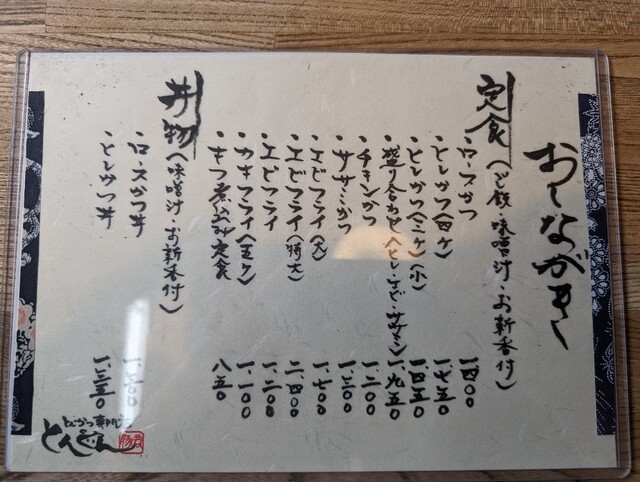 おしながき
定食（ご飯・味噌汁・お新香付）
・ロースかつ 一四〇〇
・とんかつ（四ケ） 一、七五〇
・とんかつ（三ケ）（小） 一、四五〇
・盛り合わせ（とん・エビ・ササミ） 一、九五〇
・チキンかつ 一、二〇〇
・ササミかつ 一、三〇〇
・エビフライ（大） 一、七〇〇
・エビフライ（特大） 二、四〇〇
・エビフライ 一、二〇〇
・カキフライ（五ケ） 一、一〇〇
・もつ煮込み定食 八五〇
丼物（味噌汁・お新香付）
・ロースかつ丼
・とんかつ丼 一、三五〇
とんかつ専門店